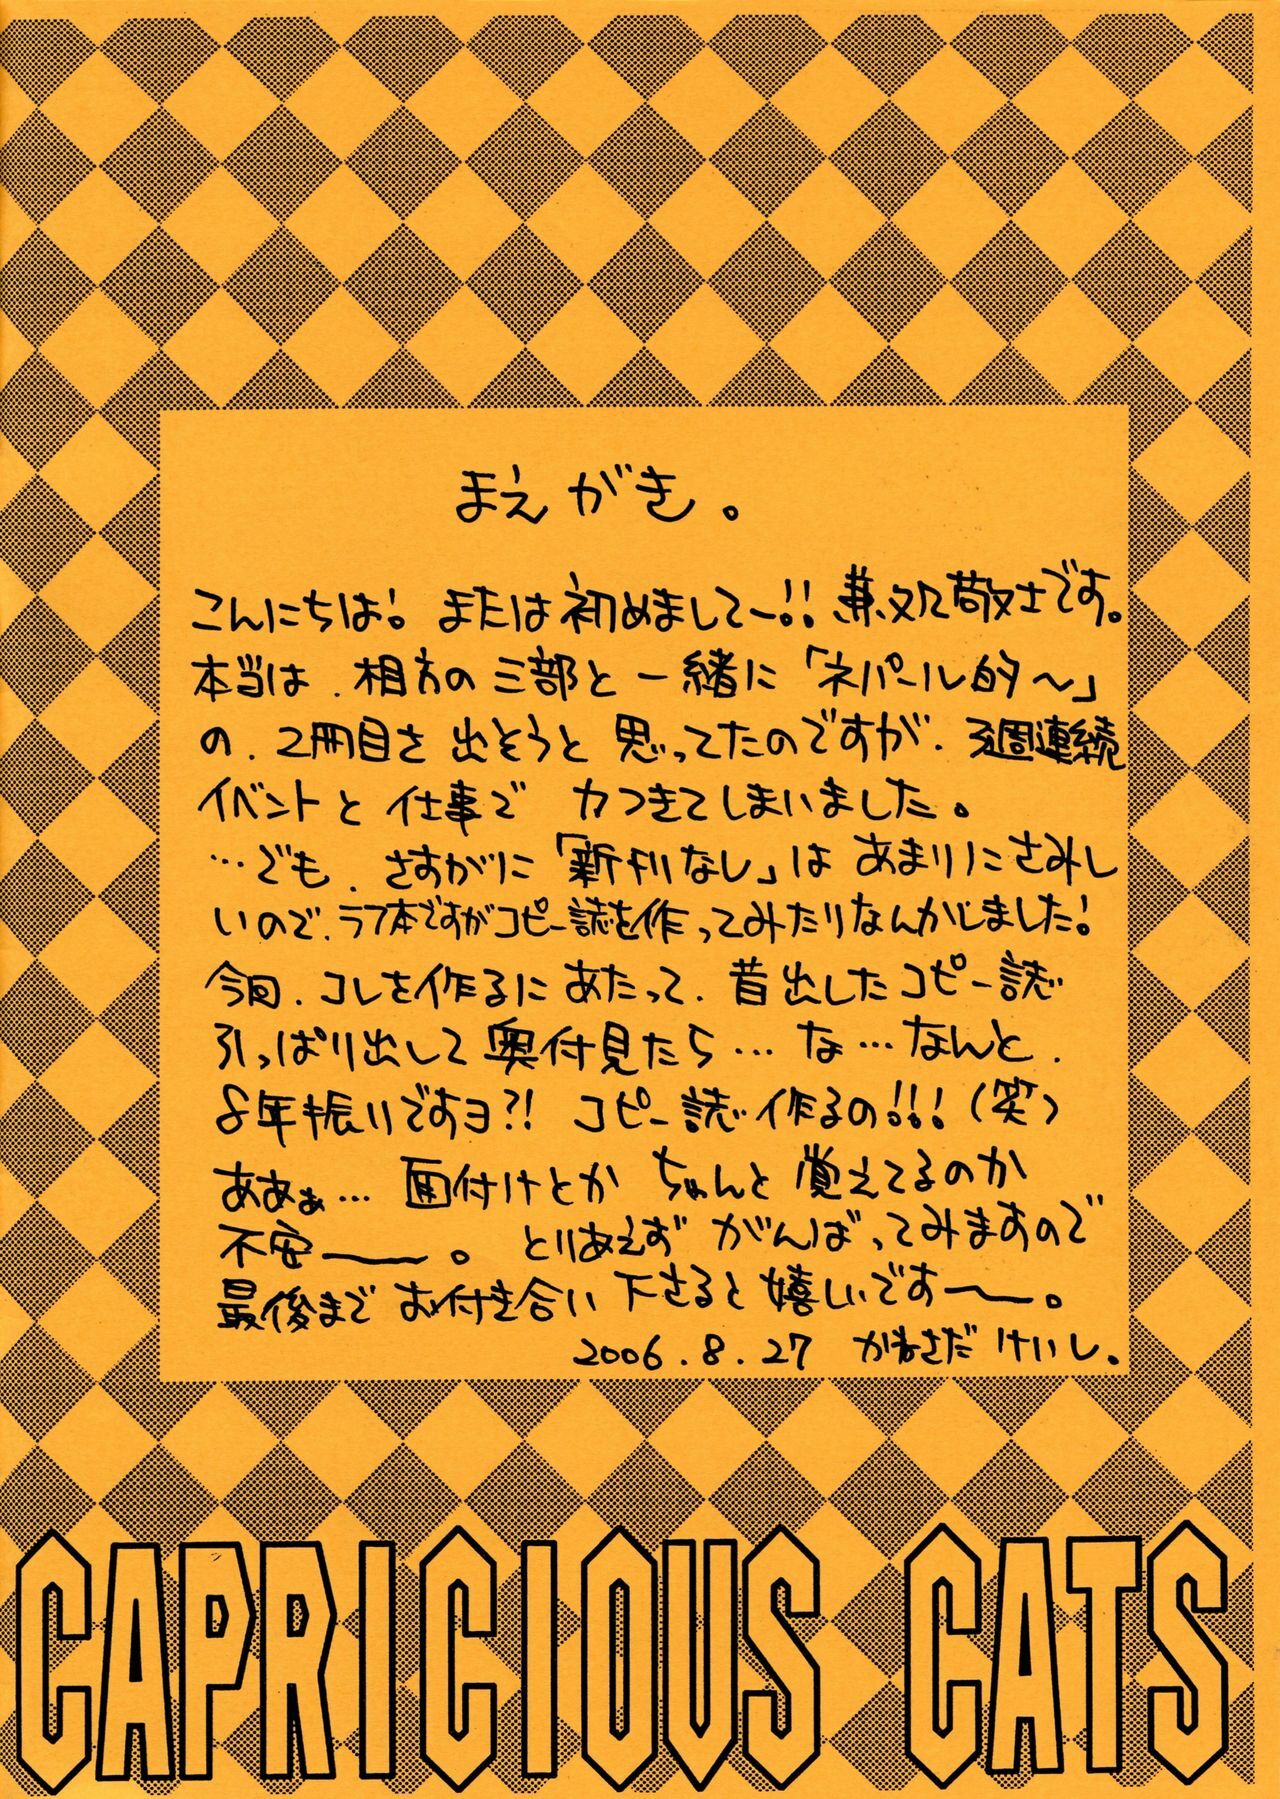 まえがき。
こんにちは！または初めましてー！！兼処敬士です。
本当は、相方の三部と一緒に「ネパール的～」
の、2冊目を出そうと思ってたのですが、3週連続
イベントと仕事で力つきてしまいました。
…でも、さすがに「新刊なし」はあまりにさみし
いので、ラフ本ですがコピー誌を作ってみたりなんかしました！
今回、コレを作るにあたって、昔出したコピー誌
引っぱり出して奥付見たら…な…なんと、
8年振りですヨ?!コピー誌作るの!!!（笑）
ああぁ…面付けとかちゃんと覚えてるのか
不安――。とりあえずがんばってみますので
最後までお付き合い下さると嬉しいです～。
2006.8.27 かねさだけいし。
CAPRICIOUS CATS